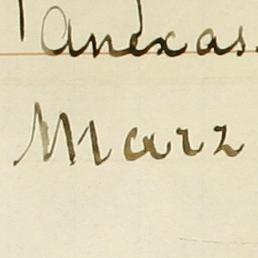 anexas.
Marz